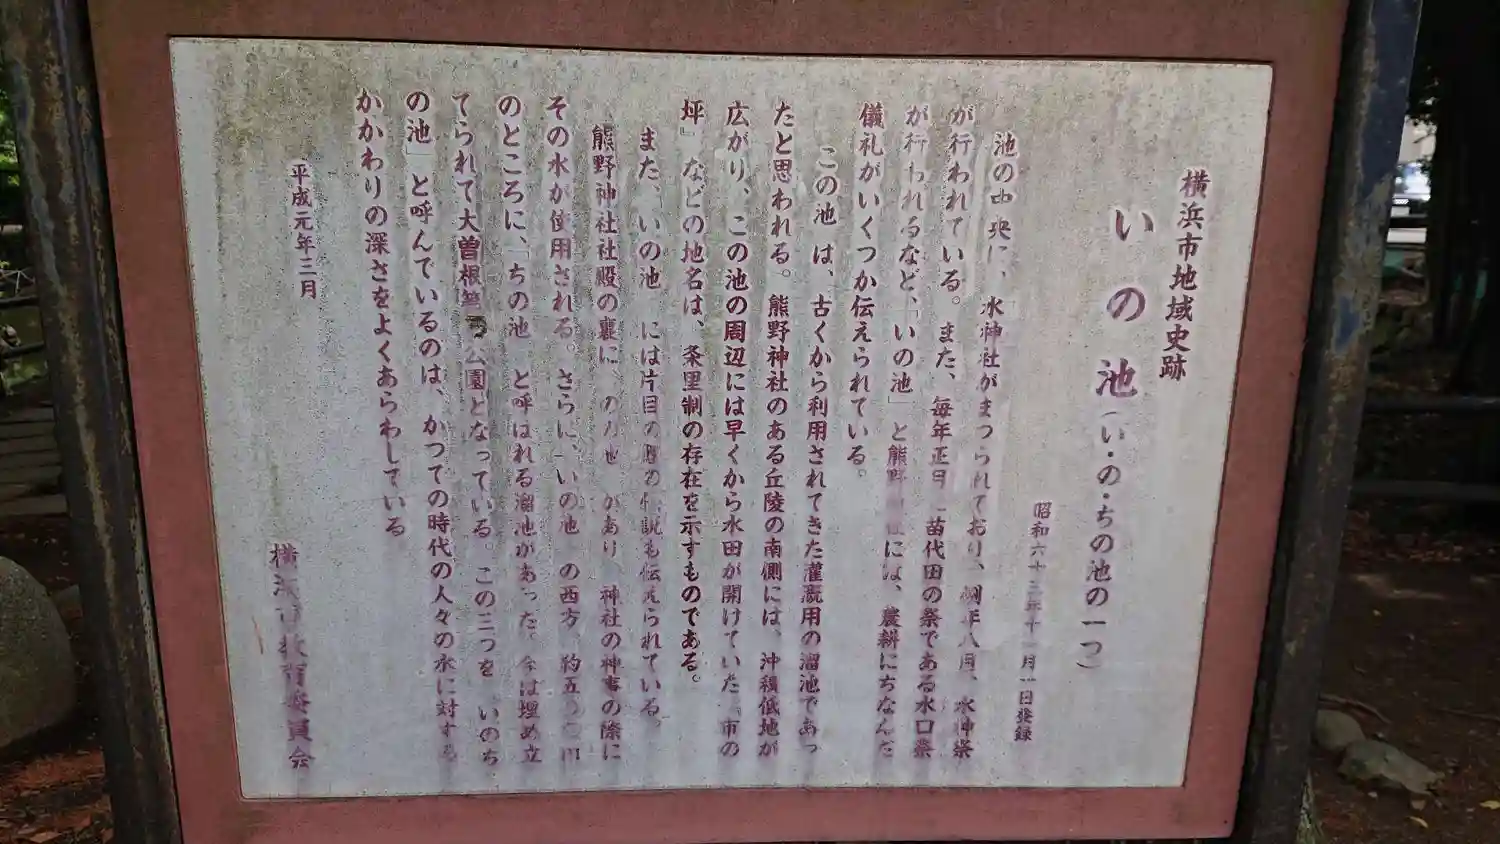 横浜市地域史跡
いの池(い・の・ちの池の一つ)
昭和六十三年十一月一日登録
池の中央に、水神社がまつられており、例年八月、水神祭
が行われている。また、毎年正月、苗代田の祭である水口祭
が行われるなど、「いの池」と熊野神社には、農耕にちなんだ
儀礼がいくつか伝えられている。
この池は、古くから利用されてきた灌漑用の溜池であっ
たと思われる。熊野神社のある丘陵の南側には、沖積低地が
広がり、この池の周辺には早くから水田が開けていた『市の
坪』などの地名は、条里制の存在を示すものである。
また、「いの池 には片目の の伝説も伝えられている
熊野神社社殿の裏に、 のの池 があり、神社の神事の際に
その水が使用される。さらに、「いの池 の西方、約五 〇 m
のところに、「ちの池 と呼ばれる溜池があった。今は埋め立
てられて大曽根第 公園となっている。この三つを いのち
の池」と呼んでいるのは、かつての時代の人々の水に対する
かかわりの深さをよくあらわしている
平成元年三月
横浜市教育委員会